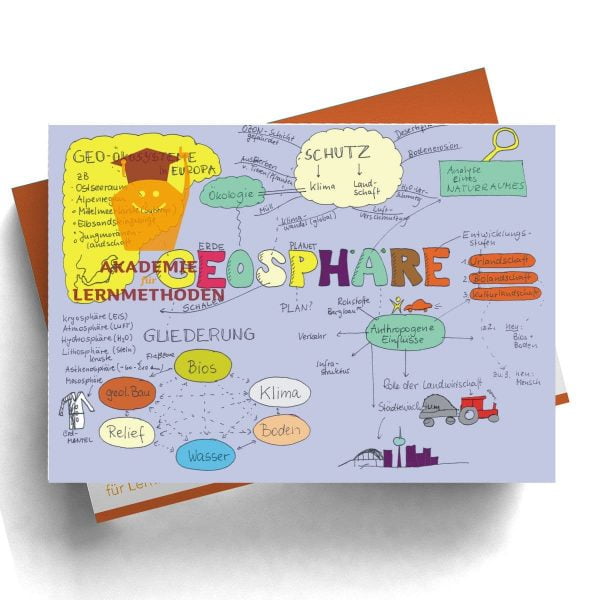 GEO-ÖKOSYSTEME
in EUROPA
zB
• Ostseeraum
• Alpenregion
• Elbsandsteingebirge
• Jungmoränen-
landschaft
OZON-Schicht
gefährdet
Aussterben
v. Tieren/Pflanzen
Ökologie
Müll
Klima-
wandel (global)
SCHUTZ
Klima
Land-
schaft
Bodenerosion
Luft-
Verschmutzung
Analyse
eines
NATURRAUMES
ERDE
PLANET
GEOSPHÄRE
AKADEMIE
für
LERNMETHODEN
SCHALE
PLAN?
Entwicklungs-
stufen
1 Urlandschaft
2 Biolandschaft
3 Kulturlandschaft
z.Z. Neu:
Bios +
Boden
zu 3. neu:
Mensch
Kryosphäre (EIS)
Atmosphäre (LUFT)
Hydrosphäre (H₂O)
Lithosphäre (Stein)
Kruste
Mesosphäre
Erd-
MANTEL
GLIEDERUNG
Einflüsse
Bios
geol. Bau
Klima
Relief
Boden
Wasser
Rohstoffe
Bergbau
Verkehr
Infra-
struktur
Anthropogene
Einflüsse
Rolle der Landwirtschaft
Städtewachstum
für Lern